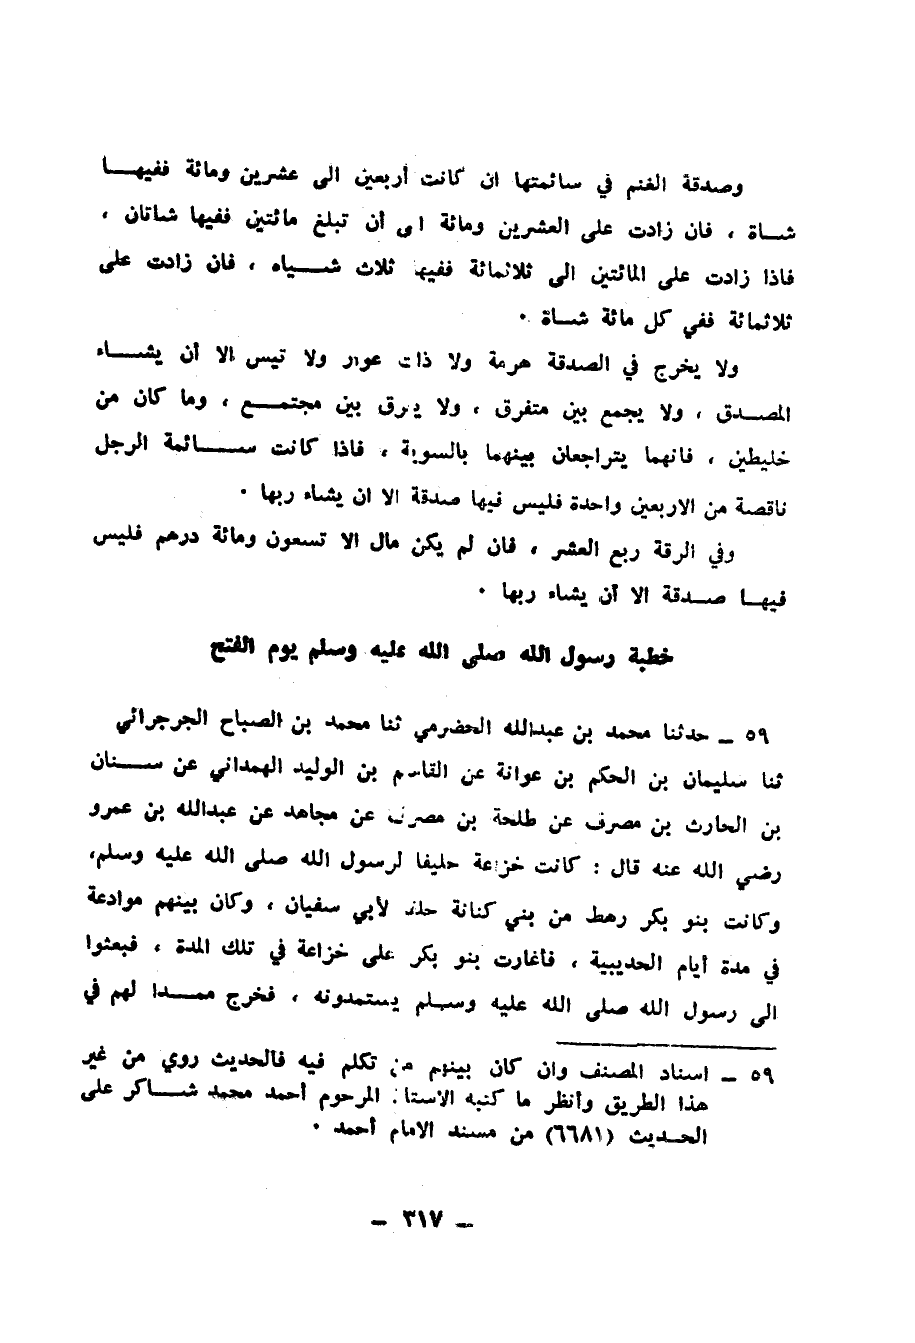 وصدقة الغنم في سائمتها ان كانت أربعين الى عشرين ومائة ففيهـــا
شـاة ، فان زادت على العشرين ومائة الى أن تبلغ مائتين ففيها شاتان ،
فاذا زادت على المائتين الى ثلاثمائة ففيها ثلاث شـــياه ، فان زادت على
ثلاثمائة ففي كل مائة شـاة .
ولا يخرج في الصدقة هرمة ولا ذات عوار ولا تيس الا أن يشـــاء
المصـدق ، ولا يجمع بين متفرق ، ولا يفرق بين مجتمـــع ، وما كان من
خليطين ، فانهما يتراجعان بينهما بالسوية ، فاذا كانت ســـائمة الرجل
ناقصة من الاربعين واحدة فليس فيها صدقة الا ان يشاء ربها .
وفي الرقة ربع العشر ، فان لم يكن مال الا تسعون ومائة درهم فليس
فيهـا صـدقة الا أن يشاء ربها .
خطبة رسول الله صلى الله عليه وسلم يوم الفتح
٥٩ ـ حدثنا محمد بن عبدالله الحضرمي ثنا محمد بن الصباح الجرجرائي
ثنا سليمان بن الحكم بن عوانة عن القاسم بن الوليد الهمداني عن ســنان
بن الحارث بن مصرف عن طلحة بن مصرف عن مجاهد عن عبدالله بن عمرو
رضي الله عنه قال : كانت خزاعة حليفا لرسول الله صلى الله عليه وسلم،
وكانت بنو بكر رهط من بني كنانة حلفا لأبي سفيان ، وكان بينهم موادعة
في مدة أيام الحديبية ، فأغارت بنو بكر على خزاعة في تلك المدة ، فبعثوا
الى رسول الله صلى الله عليه وسلم يستمدونه ، فخرج ممـــدا لهم في
٥٩ ـ اسناد المصنف وان كان بينهم من تكلم فيه فالحديث روي من غير
هذا الطريق وأنظر ما كتبه الاستاذ المرحوم أحمد محمد شـــاكر على
الحـديث (٦٦٨١) من مسند الامام أحمد .
ـ ٣١٧ ـ